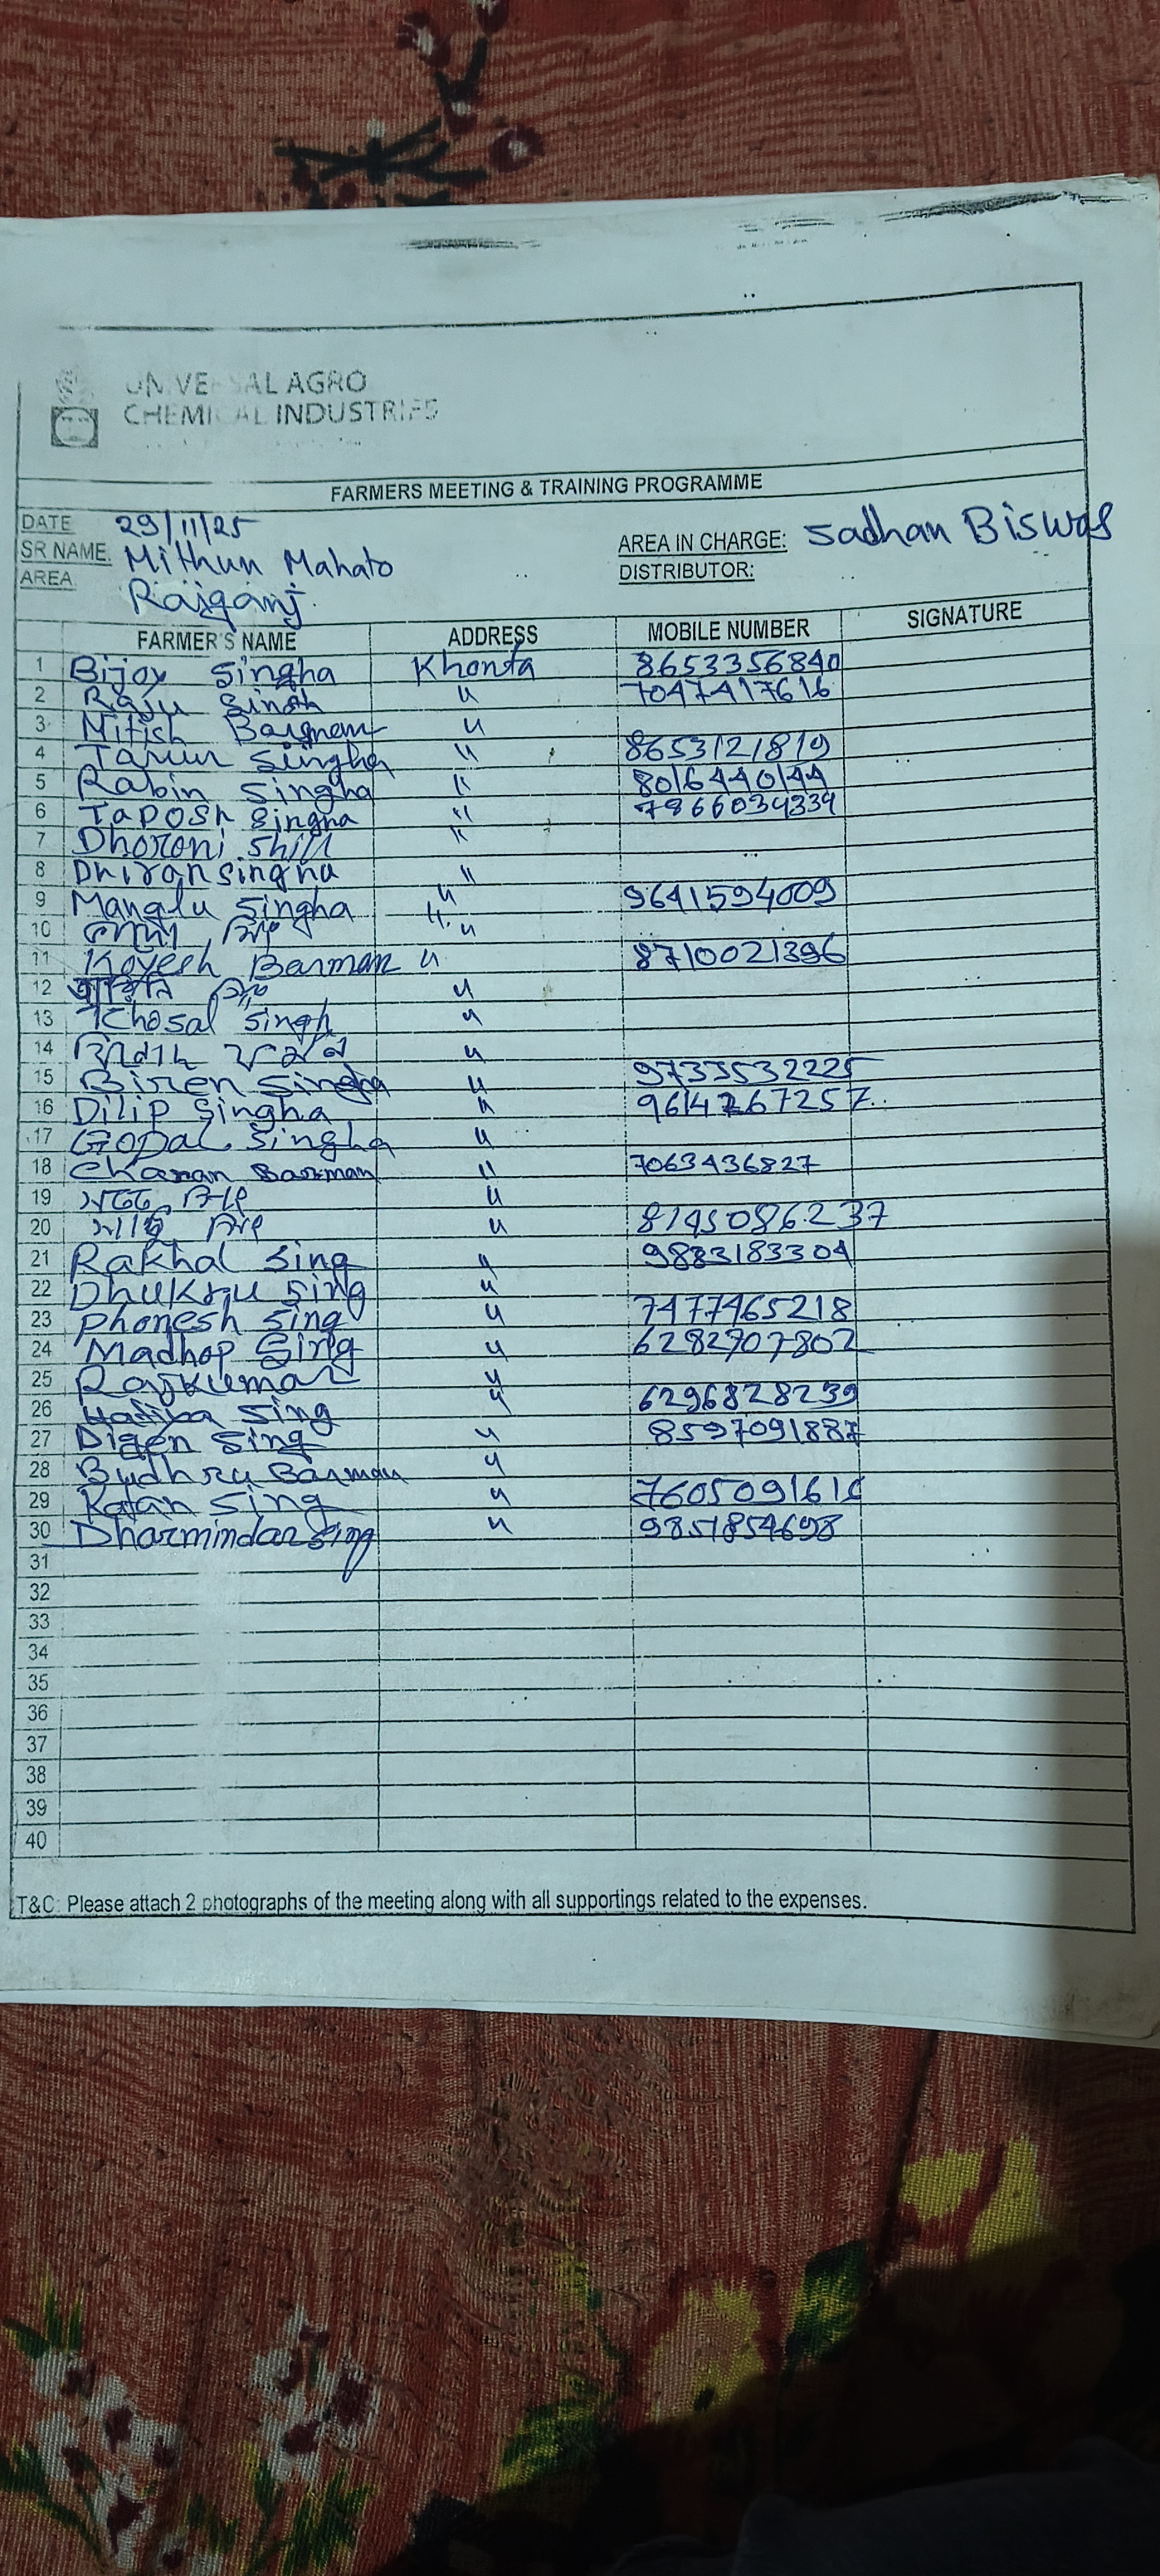 UNIVERSAL AGRO
CHEMICAL INDUSTRIES
FARMERS MEETING & TRAINING PROGRAMME
DATE 29/11/25
SR NAME: Mithun Mahato
AREA IN CHARGE: Sadhan Biswas
AREA Rajganj
DISTRIBUTOR:
FARMER'S NAME ADDRESS MOBILE NUMBER SIGNATURE
1 Bijoy Singha Khonta 8653356840
2 Raju Singh " 7047417616
3 Mitish "
4 Tarun Singha " 8653121819
5 Rabin Singha " 8016440144
6 Taposh Singha " 7866034334
7 Dhoroni Shill "
8 Dhiran Singha "
9 Manglu Singha " 9641594009
10 সিংহ "
11 Koyesh Barman " 8710021396
12 "
13 Khosal Singh "
14 "
15 Biren Singha " 9733532225
16 Dilip Singha " 9614267257
17 Gopal Singha "
18 Barman " 7063436827
19 সিংহ "
20 সিংহ " 8145086237
21 Rakhal Sing " 9883183304
22 Dhukru Sing "
23 Phonesh Sing " 7477465218
24 Madhop Sing " 6282707802
25 Rajkumar "
26 Sing " 6296828239
27 Digen Sing " 8597091887
28 Budhru Barman "
29 Ratan Sing "
30 Dharmindar Sing " 9851854698
31
32
33
34
35
36
37
38
39
40
T&C: Please attach 2 photographs of the meeting along with all supportings related to the expenses.